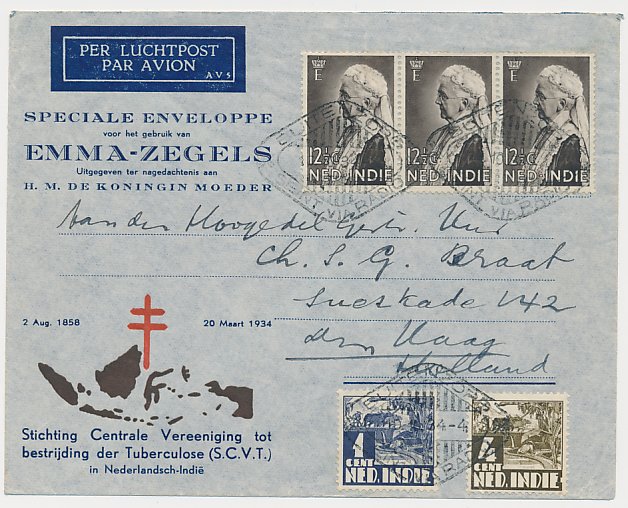 PER LUCHTPOST
PAR AVION
AVS
SPECIALE ENVELOPPE
voor het gebruik van
EMMA-ZEGELS
Uitgegeven ter nagedachtenis aan
H. M. DE KONINGIN MOEDER
E E E
12½ C. 12½ C. 12½ C.
NED·INDIE NED·INDIE NED·INDIE
Aan den Hoogedelgestr. Heer
Ch. S. G. Braat
Sueskade 142
den Haag
Holland
2 Aug. 1858 20 Maart 1934
Stichting Centrale Vereeniging tot
bestrijding der Tuberculose (S.C.V.T.)
in Nederlandsch-Indië
1 CENT
NED. INDIE
4 CENT
NED. INDIE